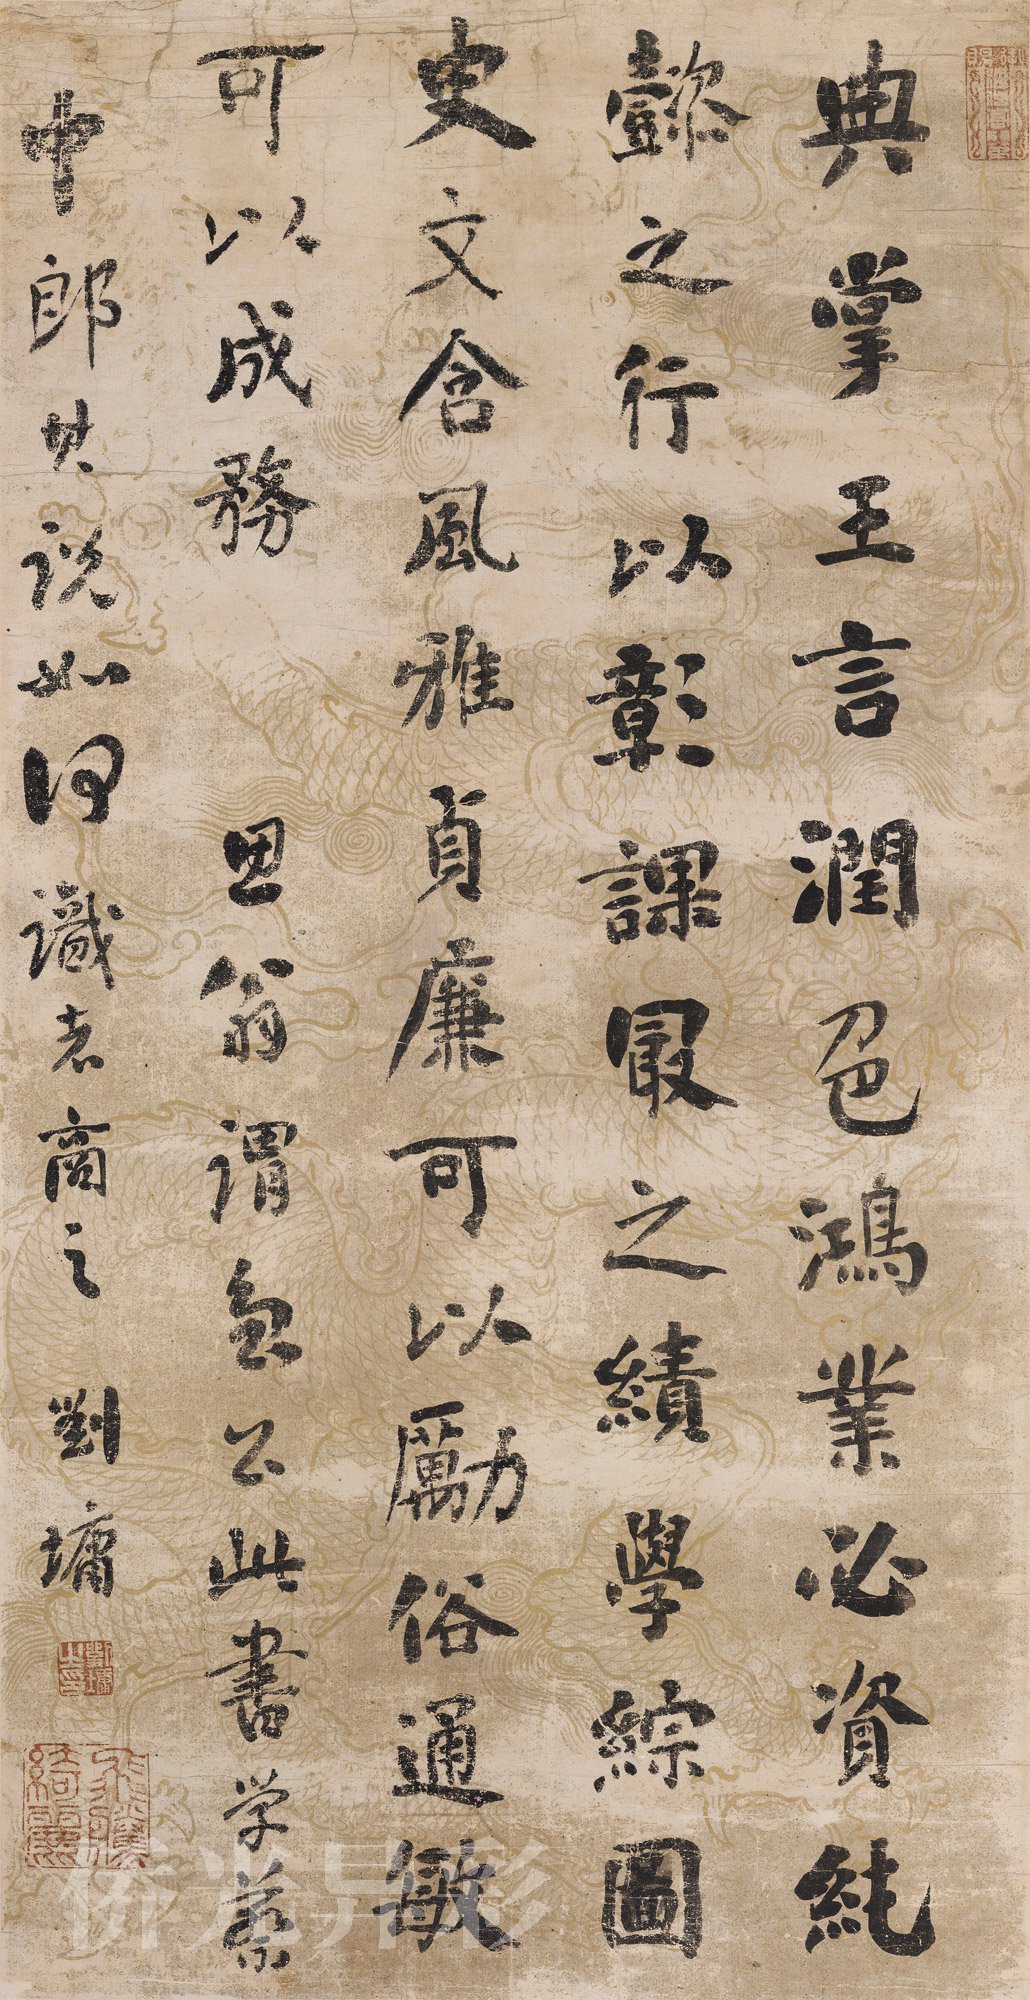 典掌王言潤色鴻業必資純
懿之行以彰課最之績學綜圖
史文含風雅貞廉可以勵俗通敏
可以成務　思翁謂魯公此書学蔡
中郎其説如何識者商之　劉墉
劉墉之印
飛騰綺麗